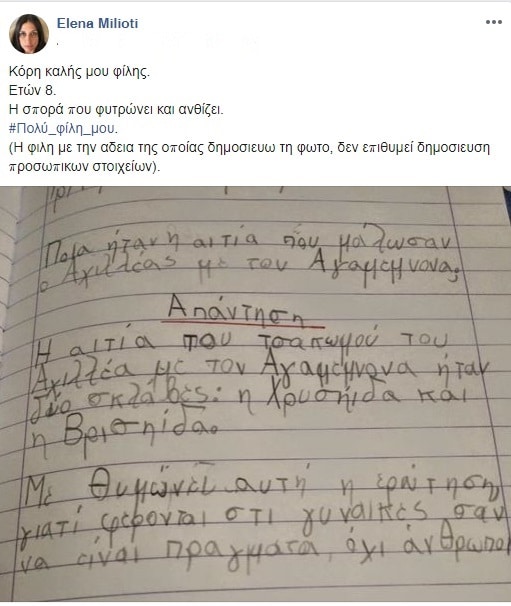 Elena Milioti
Κόρη καλής μου φίλης.
Ετών 8.
Η σπορά που φυτρώνει και ανθίζει.
#Πολύ_φίλη_μου.
(Η φιλη με την αδεια της οποίας δημοσιευω τη φωτο, δεν επιθυμεί δημοσιευση
προσωπικων στοιχείων).
Ποια ήταν η αιτία που μάλωσαν
ο Αχιλέας με τον Αγαμέμνονα;
Απάντηση
Η αιτία που τσακωμού του
Αχιλλέα με τον Αγαμέμνονα ήταν
δύο σκλάβες: η Χρυσηίδα και
η Βρισηίδα.
Με θυμώνει αυτή η ερώτηση
γιατί φέρονται στι γυναίκες σαν
να είναι πραγματα, όχι άνθρωποι